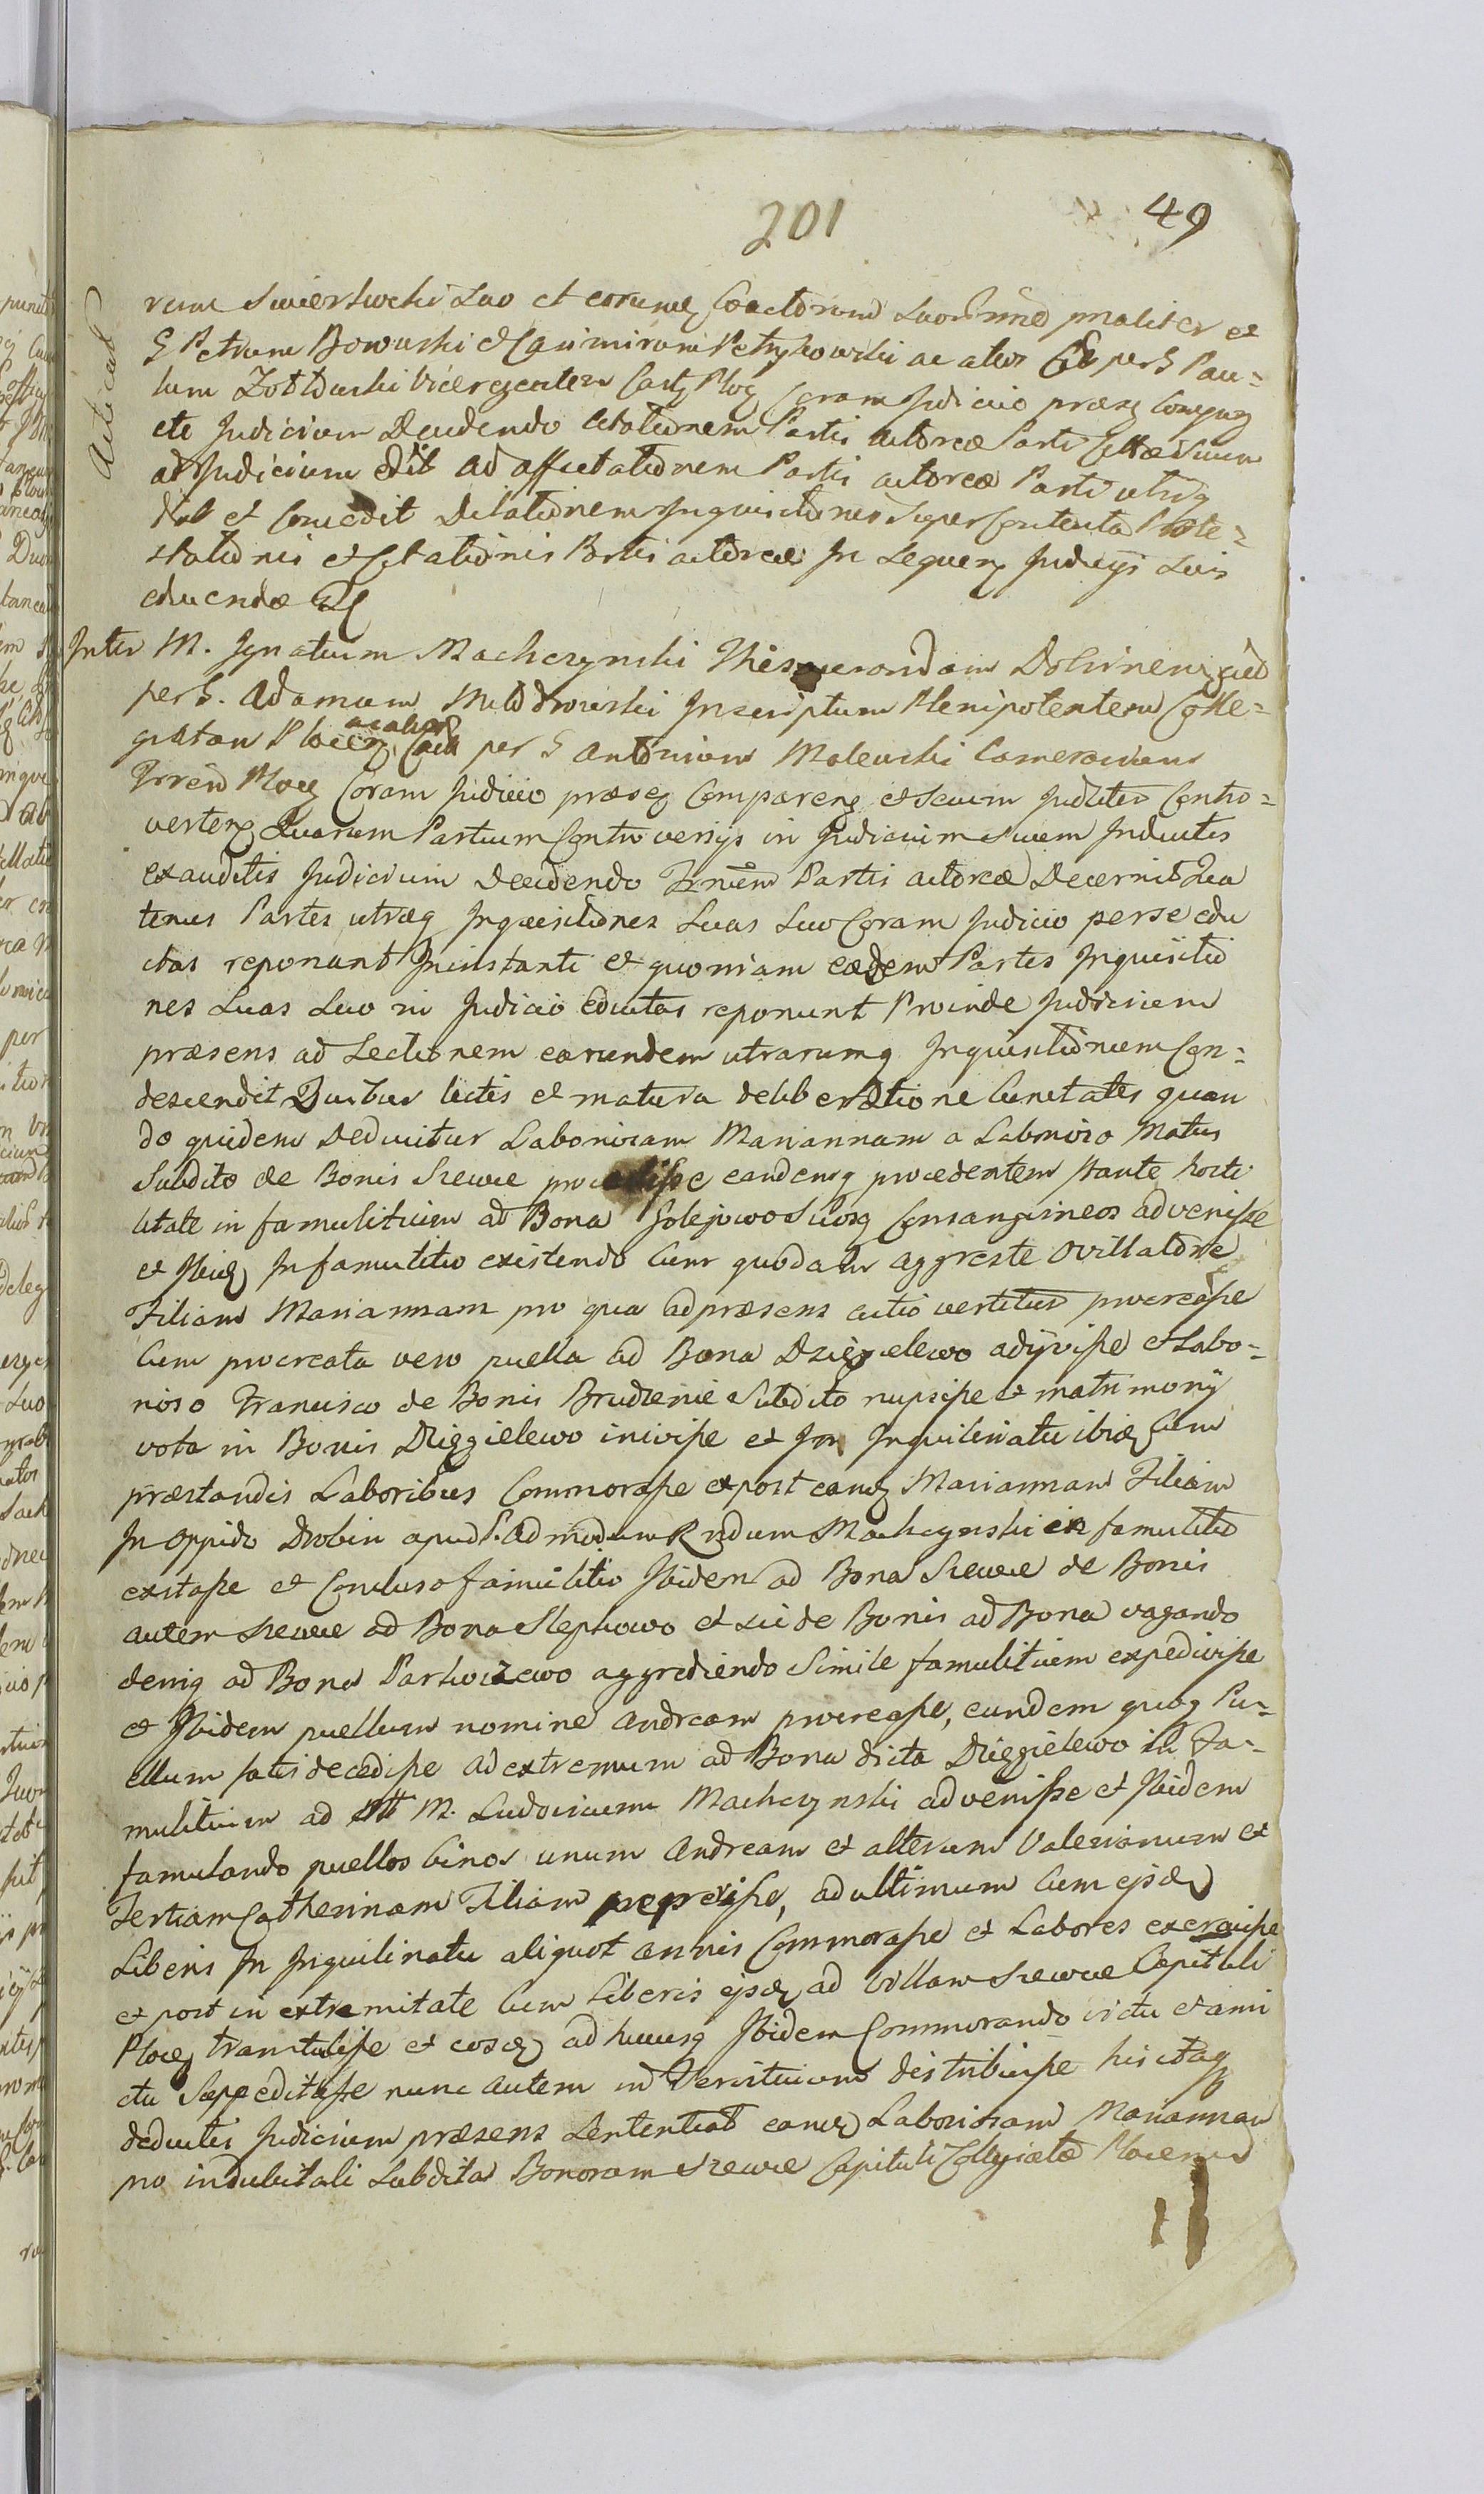 201
49
rum Swierkocki suo et eorum Coactorum suor nme pnaliter et
G Petrum Borouski et Casimirum Petrykowski ac alios per G Pau=
lum Zottowski Viceregentem Cast Ploc Coram Judicio præs
cte Judicium Decidendo Citationem Partis actoreæ Parti suum
ad Judicium ad affectationem Partis actoreæ Parti utriq
dat et Concedit Dilationem Inquisitiones super Contenta Prote=
stationis et Citationis Partis actoreæ In sequen Judicijs suis
educendæ
Acticat
Inter M. Ignatium Machczynski Dobrinen
per G. Adamum Mlodrowski Inscriptum Plenipotentem Colle=
giatam Plocen ac alios per G Antonium Malewski Camerarium
Ploc Coram Judicio præsen Comparen et secum Juditer Contro=
verten Quarum Partium Controversijs in Judicium suum Inductis
exauditis Judicium Decidendo Partis actoreæ Decernit Qua
tenus Partes utræq Inquisitiones suas suo Coram Judicio per se edu
ctas reponant In instanti et quoniam eædem Partes Inquisitio
nes suas suo in Judicio Eductas reponunt Proinde Judicium
præsens ad Lectionem earundem utrarumq Inquisitionum Con=
descendit Quibus lectis et matura deliberatione quan
do quidem Deducitur Laboriosam Mariannam a Laborioso Matus
Subdito de Bonis Srewie eandemq procedentem stante hosti
litate in famulitium ad Bona Golejowo suosq Consangvineos advenisse
et Ibiq In famulitio existendo Cum quodam aggreste ovillatore
Filiam Mariannam pro qua ad præsens actio vertitur procreasse
Cum procreata vero puella ad Bona Dziegielewo adijvisse et Labo=
rioso Francisco de Bonis Brudzenie Subdito nupsisse et matrimonij
vota in Bonis Dzięgielewo inivisse et In Inquilinatu ibiq Cum
præstandis Laboribus Commorasse et post eanq Mariannam Filiam
In oppido Drobin apud P. admodum Rndum Machczynski in famulitio
exstasse et Concluso famulitio Ibidem ad Bona Srewie de Bonis
autem Srewie ad Bona Slepkowo et sic de Bonis ad Bona vagando
deniq ad Bona Parkoczewo aggrediendo Simile famulitium expedivisse
et Ibidem puellum nomine Andream procreasse, eundem quoq Pu=
ellum fatis decedisse ad extremum ad Bona dicta Dzięgielewo in Fa=
mulitium ad M. Ludovicum Machczynski advenisse et Ibidem
famulando puellos binos unum Andream et alterum Valerianum et
Tertiam Catherinam Filiam peperisse, ad ultimum Cum ejsdq
Liberis In Inquilinatu aliquot annis Commorasse et Labores exercuisse
et post in extremitate Cum Liberis ejsdq ad Villam Srewie Capituli
Ploc transtulisse et eosdq ad hucusq Ibidem Commorando victu et ami
ctu Suppeditasse nunc autem in Servitium distribuisse his itaq
deductis Judicium præsens Sententiat eandq Laboriosam Mariannam
pro indubitali Subdita Bonorum Srewie Capituli Collegiatæ Plocensis